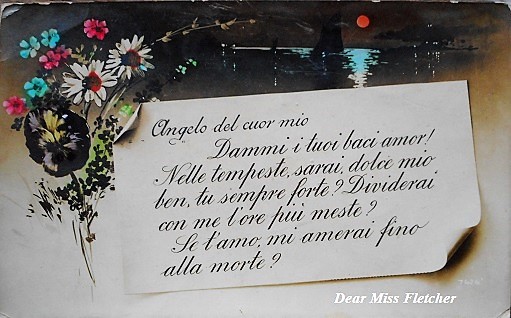 Angelo del cuor mio
Dammi i tuoi baci amor!
Nelle tempeste, sarai, dolce mio
ben, tu sempre forte? Dividerai
con me l'ore piú meste?
Se t'amo, mi amerai fino
alla morte?
Dear Miss Fletcher